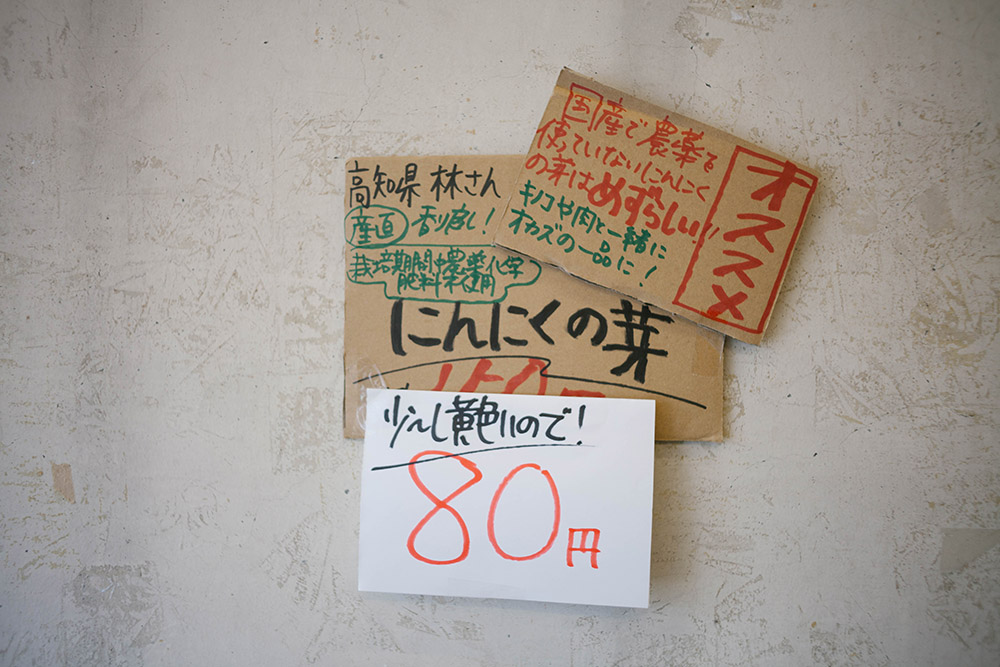 高知県 林さん
産直 香り良し!
栽培期間中農薬化学
肥料不使用
にんにくの芽
国産で農薬を
使っていないにんにく
の芽はめずらしい!!
キノコや肉と一緒に
オカズの一品に!
オススメ
少々し黄色いので!
80円